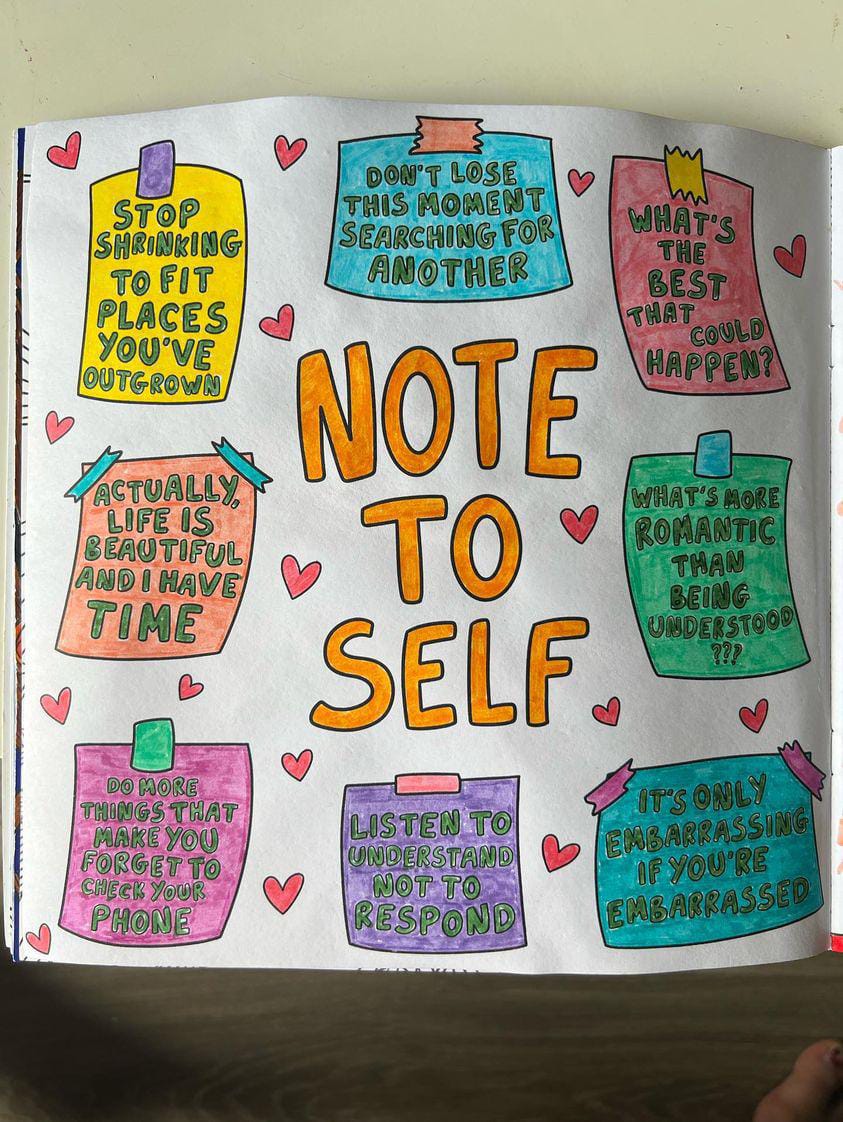 STOP
SHRINKING
TO FIT
PLACES
YOU'VE
OUTGROWN
DON'T LOSE
THIS MOMENT
SEARCHING FOR
ANOTHER
WHAT'S
THE
BEST
THAT
COULD
HAPPEN?
NOTE
TO
SELF
ACTUALLY,
LIFE IS
BEAUTIFUL
AND I HAVE
TIME
WHAT'S MORE
ROMANTIC
THAN
BEING
UNDERSTOOD
???
DO MORE
THINGS THAT
MAKE YOU
FORGET TO
CHECK YOUR
PHONE
LISTEN TO
UNDERSTAND
NOT TO
RESPOND
IT'S ONLY
EMBARRASSING
IF YOU'RE
EMBARRASSED